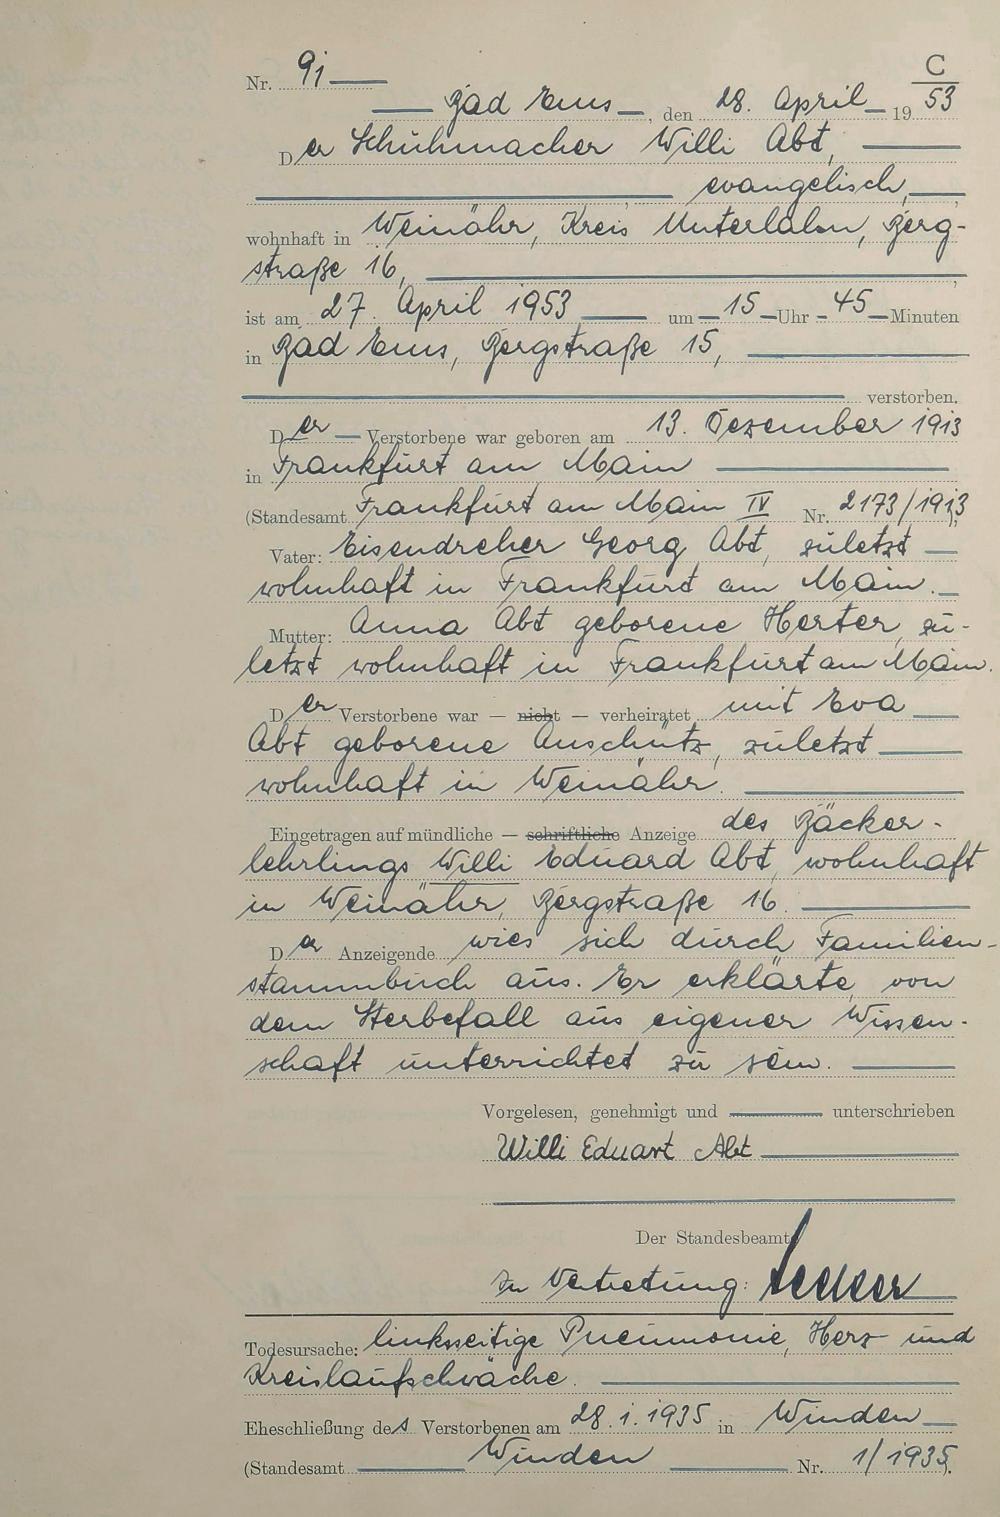 C
Nr. 91
Bad Ems, den 28. April 1953
Der Schuhmacher Willi Abt,
evangelisch,
wohnhaft in Weinähr, Kreis Unterlahn, Berg-
straße 16,
ist am 27. April 1953 um 15 Uhr 45 Minuten
in Bad Ems, Bergstraße 15,
verstorben.
Der Verstorbene war geboren am 13. Dezember 1913
in Frankfurt am Main
(Standesamt Frankfurt am Main IV Nr. 2173/1913)
Vater: Eisendreher Georg Abt, zuletzt
wohnhaft in Frankfurt am Main.
Mutter: Anna Abt geborene Herter, zu-
letzt wohnhaft in Frankfurt am Main.
Der Verstorbene war — nicht — verheiratet mit Eva
Abt geborene Anschütz, zuletzt
wohnhaft in Weinähr.
Eingetragen auf mündliche — schriftliche Anzeige des Bäcker-
lehrlings Willi Eduard Abt, wohnhaft
in Weinähr, Bergstraße 16.
Der Anzeigende wies sich durch Familien-
stammbuch aus. Er erklärte, von
dem Sterbefall aus eigener Wissen-
schaft unterrichtet zu sein.
Vorgelesen, genehmigt und unterschrieben
Willi Eduart Abt
Der Standesbeamte
In Vertretung:
Todesursache: linksseitige Pneumonie, Herz- und
Kreislaufschwäche.
Eheschließung des Verstorbenen am 28.1.1935 in Winden
(Standesamt Winden Nr. 1/1935).